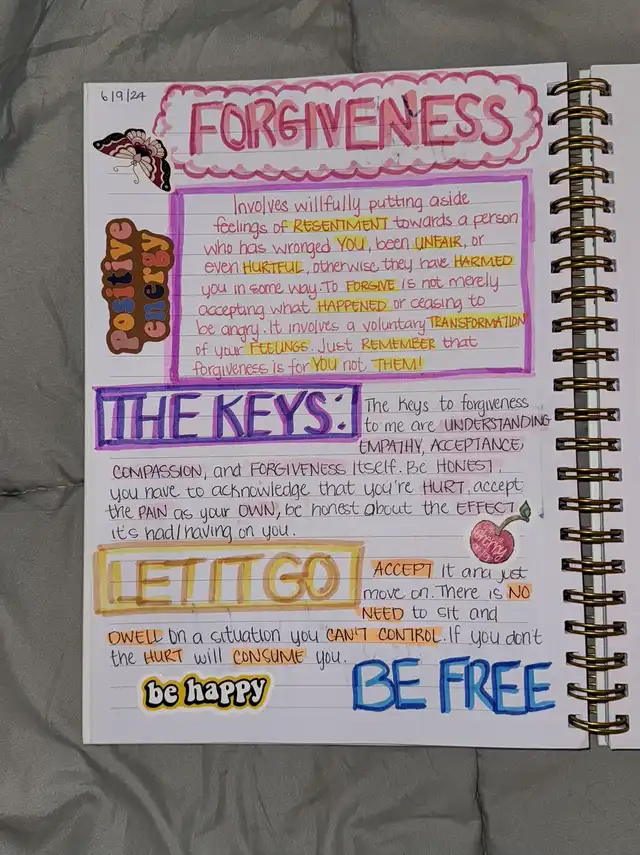 6/9/24
FORGIVENESS
Positive
energy
Involves willfully putting aside
feelings of RESENTMENT towards a person
who has wronged YOU, been UNFAIR, or
even HURTFUL, otherwise they have HARMED
you in some way. To FORGIVE is not merely
accepting what HAPPENED or ceasing to
be angry. It involves a voluntary TRANSFORMATION
of your FEELINGS. Just REMEMBER that
forgiveness is for YOU not THEM!
THE KEYS:
The keys to forgiveness
to me are UNDERSTANDING
EMPATHY, ACCEPTANCE,
COMPASSION, and FORGIVENESS itself. Be HONEST,
you have to acknowledge that you're HURT, accept
the PAIN as your OWN, be honest about the EFFECT
it's had/having on you.
LET IT GO
ACCEPT it and just
move on. There is NO
NEED to sit and
DWELL on a situation you CAN'T CONTROL. If you don't
the HURT will CONSUME you.
be happy
BE FREE